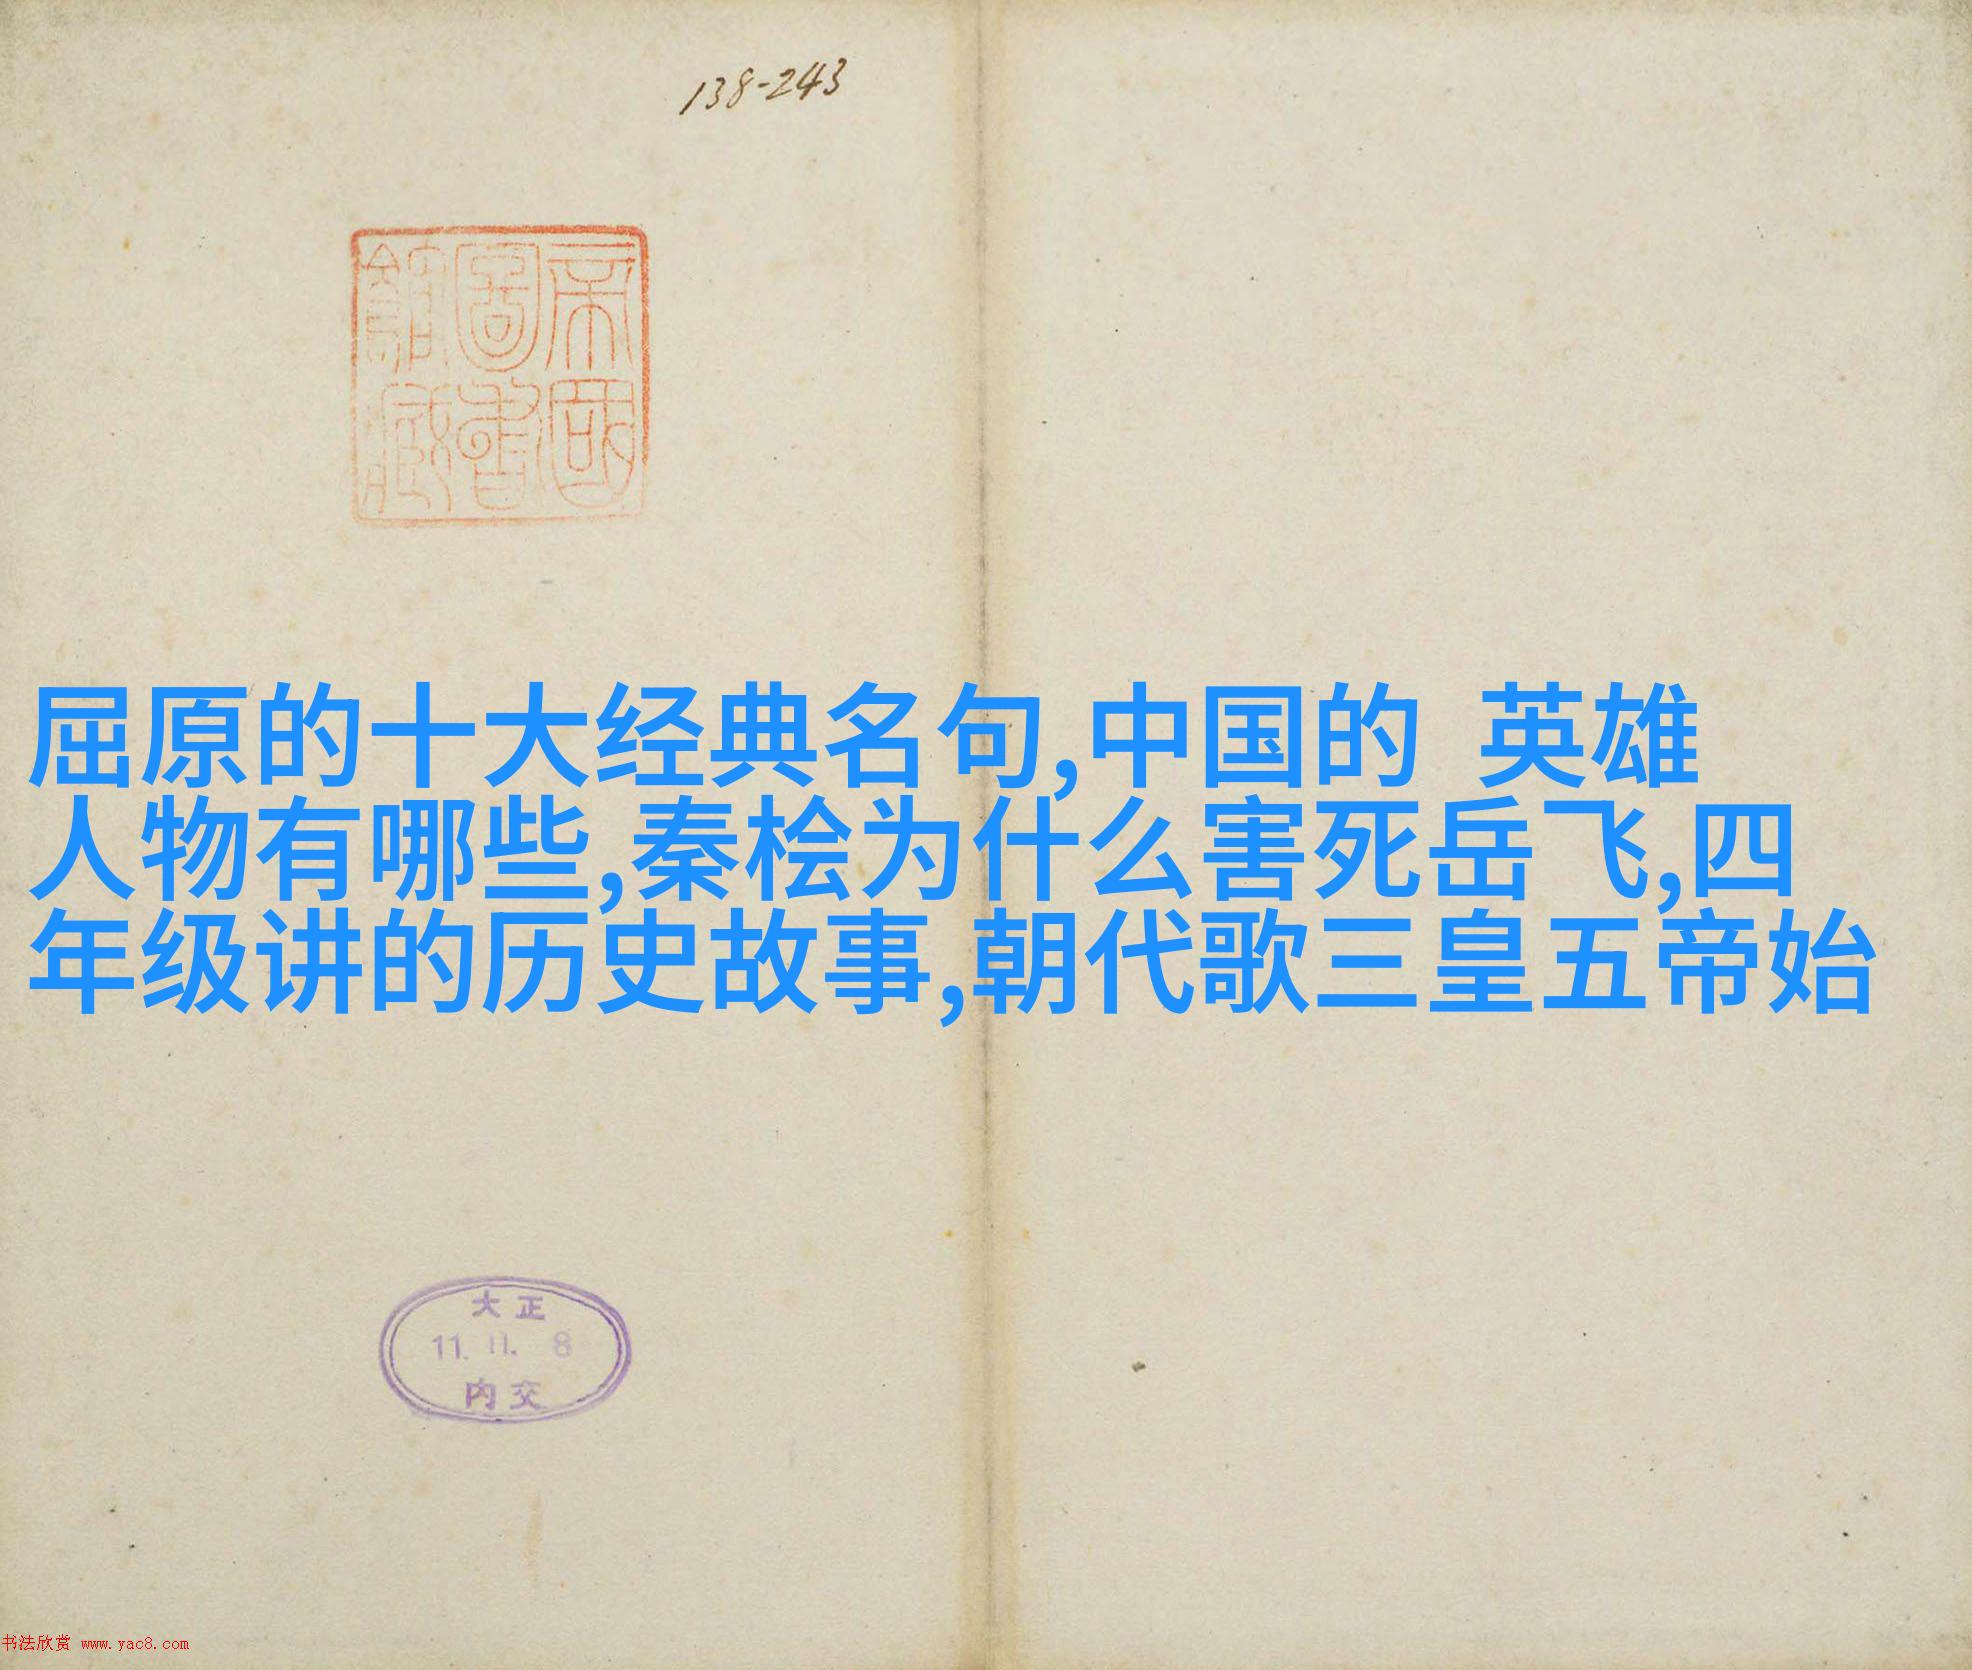 138-243
帝國
圖書
館藏
屈原的十大经典名句,中国的 英雄
人物有哪些,秦桧为什么害死岳飞,四
年级讲的历史故事,朝代歌三皇五帝始
大正
11. 11. 8
内交
书法欣赏 www.yac8.com